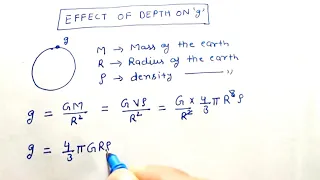 EFFECT OF DEPTH ON 'g'
g
M → Mass of the earth
R → Radius of the earth
ρ → density ——〃——
g = GM/R² = GVρ/R² = G × 4/3 π R³ ρ/R²
g = 4/3 π G R ρ